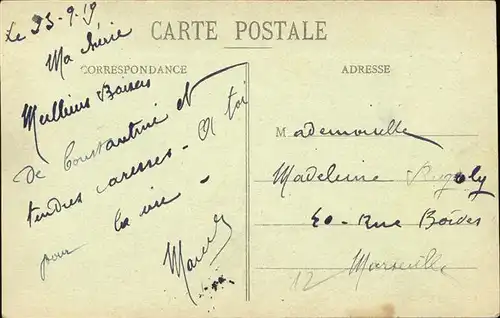 Le 25-9-19
CARTE POSTALE
Ma chérie
CORRESPONDANCE
Meilleurs Baisers
de Constantine et
tendres caresses - A toi
pour la vie -
Marcel
ADRESSE
Mademoiselle
Madeleine
40 - Rue Boïdes
12 Marseille